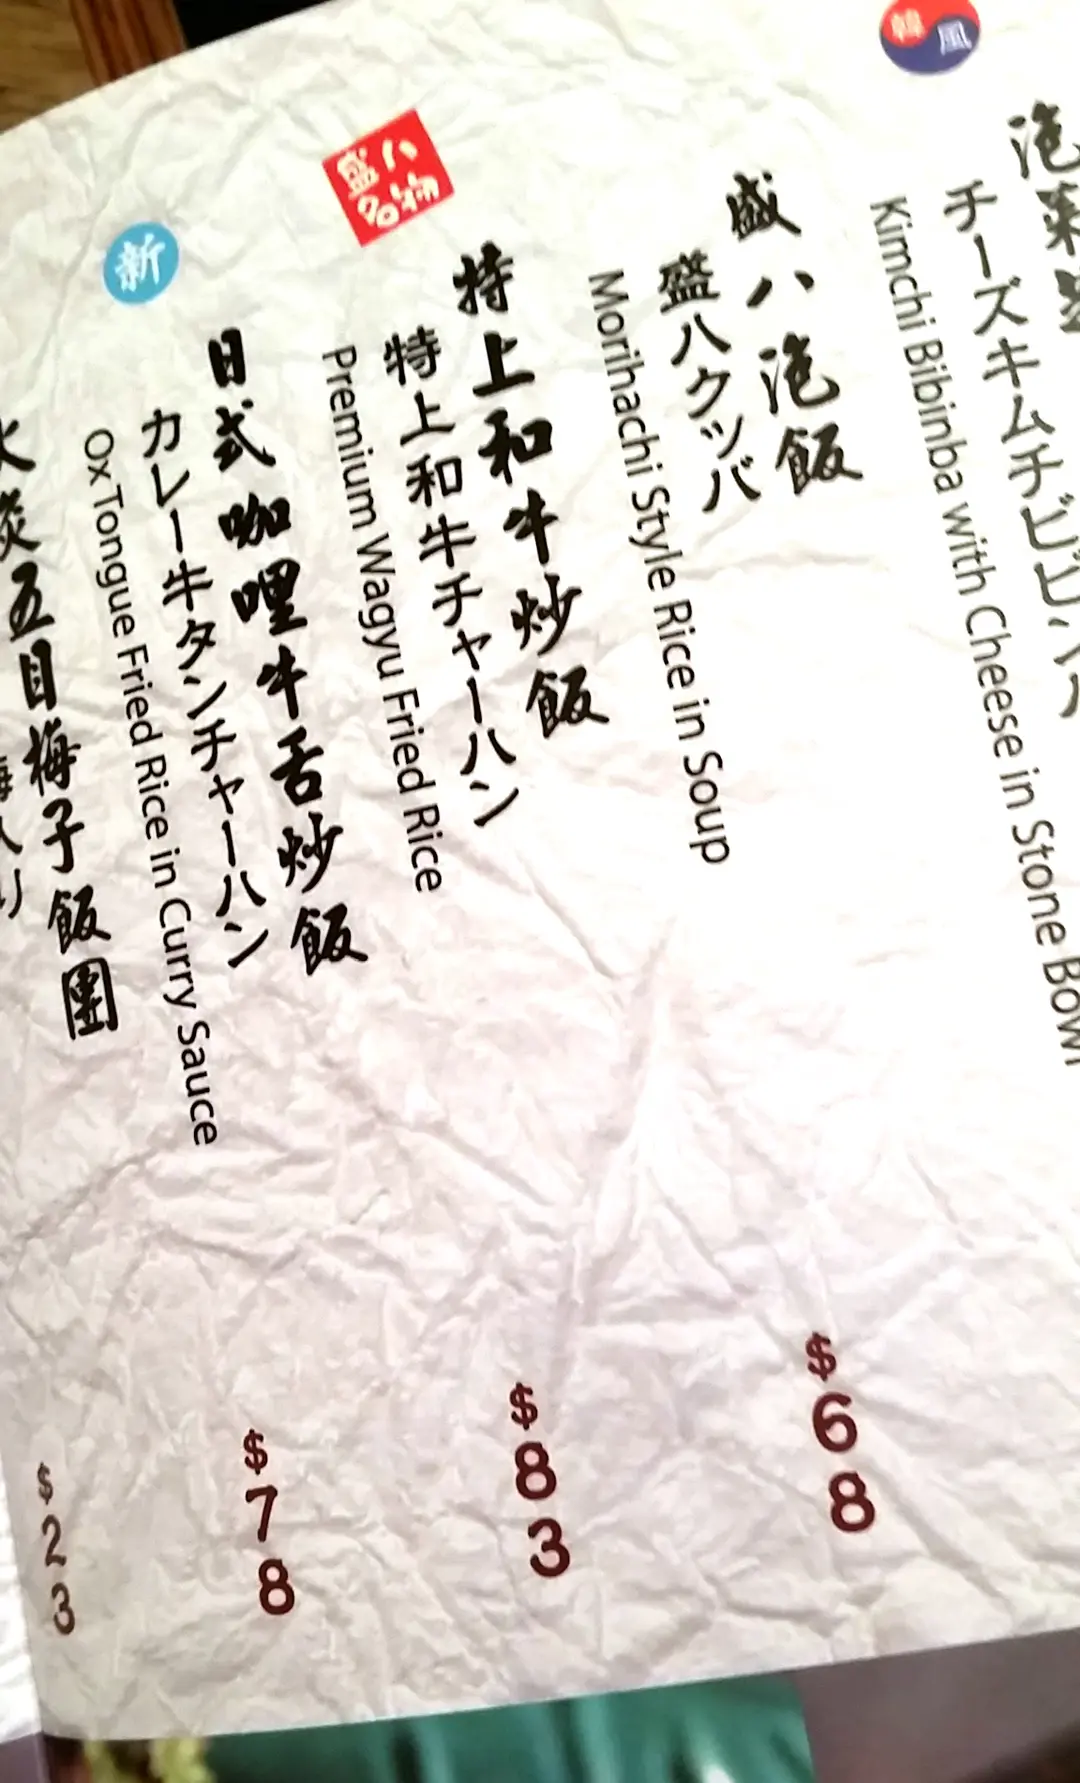 韓風
チーズキムチビビンバ
Kimchi Bibinba with Cheese in Stone Bowl
盛八泡飯
盛八クッパ
Morihachi Style Rice in Soup
$68
盛八名物
特上和牛炒飯
特上和牛チャーハン
Premium Wagyu Fried Rice
$83
新
日式咖喱牛舌炒飯
カレー牛タンチャーハン
Ox Tongue Fried Rice in Curry Sauce
$78
五目梅子飯團
$23